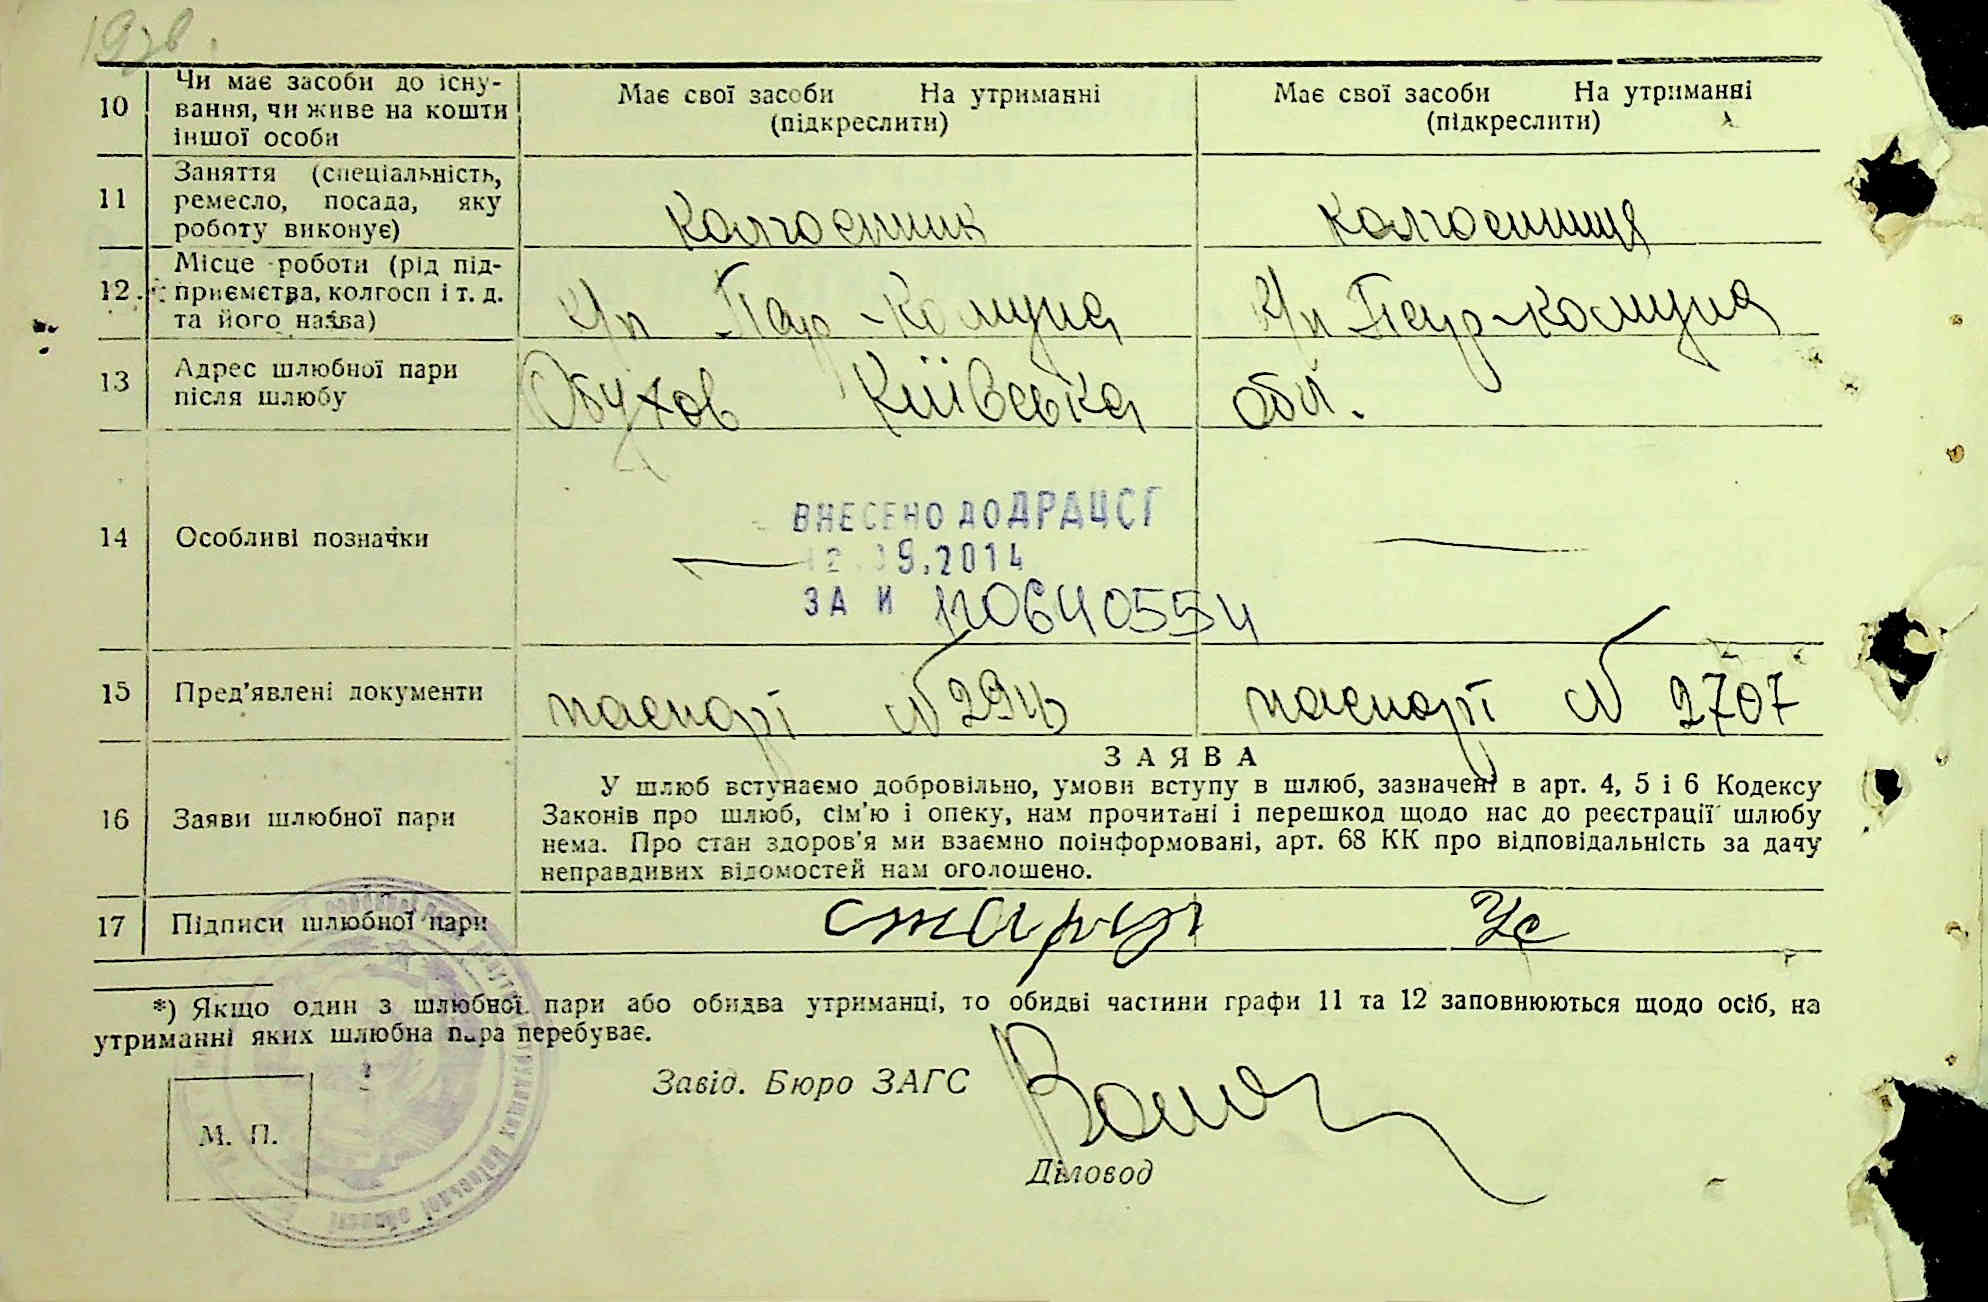 10 Чи має засоби до існу-
вання, чи живе на кошти
іншої особи
Має свої засоби На утриманні
(підкреслити)
Має свої засоби На утриманні
(підкреслити)
11 Заняття (спеціальність,
ремесло, посада, яку
роботу виконує)
колгоспник
колгоспниця
12 Місце роботи (рід під-
приємства, колгосп і т. д.
та його назва)
Пар-Комуна
Пар-комуна
13 Адрес шлюбної пари
після шлюбу
Обухов Київська обл.
14 Особливі позначки
ВНЕСЕНО ДО ДРАЦСГ
09.2014
ЗА
15 Пред'явлені документи
паспорт №
паспорт № 2707
16 Заяви шлюбної пари
ЗАЯВА
У шлюб вступаємо добровільно, умови вступу в шлюб, зазначені в арт. 4, 5 і 6 Кодексу
Законів про шлюб, сім'ю і опеку, нам прочитані і перешкод щодо нас до реєстрації шлюбу
нема. Про стан здоров'я ми взаємно поінформовані, арт. 68 КК про відповідальність за дачу
неправдивих відомостей нам оголошено.
17 Підписи шлюбної пари
*) Якщо один з шлюбної пари або обидва утриманці, то обидві частини графи 11 та 12 заповнюються щодо осіб, на
утриманні яких шлюбна пара перебуває.
Завід. Бюро ЗАГС
М. П.
Діловод